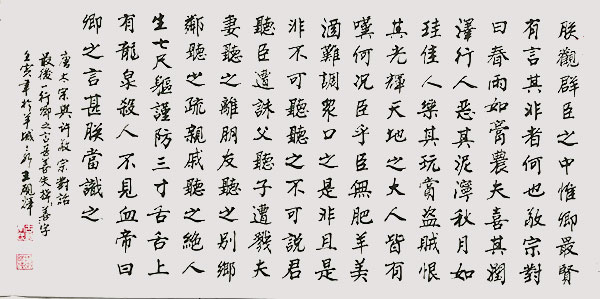 朕觀群臣之中惟卿最賢
有言其非者何也敬宗對
曰春雨如膏農夫喜其潤
澤行人惡其泥濘秋月如
珪佳人樂其玩賞盜賊恨
其光輝天地之大人皆有
嘆何況臣乎臣無肥羊美
酒難調衆口之是非且是
非不可聽聽之不可說君
聽臣遭誅父聽子遭戮夫
妻聽之離朋友聽之別鄉
鄰聽之疏親戚聽之絶人
生七尺軀謹防三寸舌舌上
有龍泉殺人不見血帝曰
卿之言甚朕當識之
唐太宗與許敬宗對話
最後一行卿之言甚善失掉善字
壬寅年於羊城